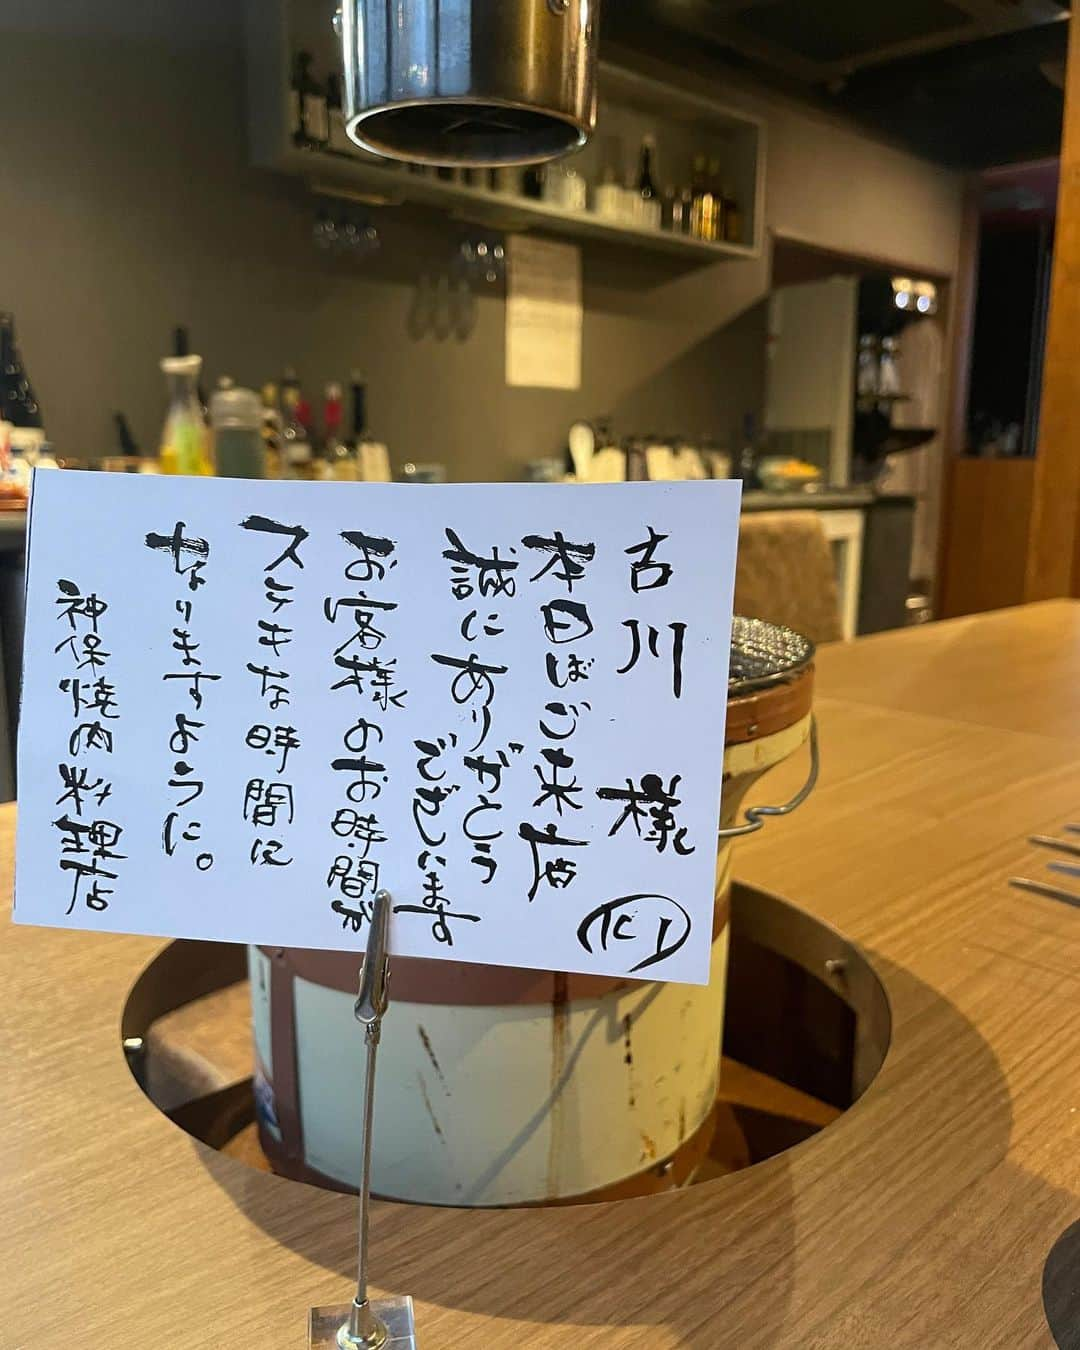 古川 様
本日はご来店
誠にありがとう
ございます
お客様のお時間が
ステキな時間に
なりますように。
神保焼肉料理店